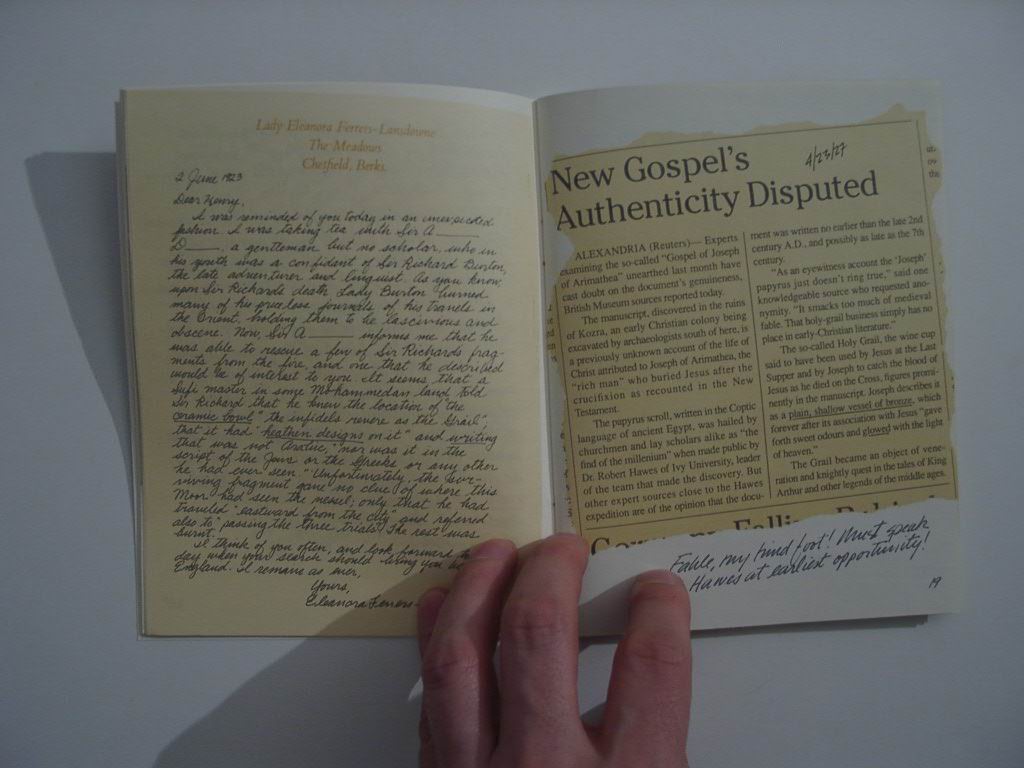 Lady Eleanora Ferrers-Lansdowne
The Meadows
Chetfield, Berks.
2 June 1923
Dear Henry,
I was reminded of you today in an unexpected
fashion. I was taking tea with Sir A____
D____, a gentleman but no scholar, who in
his youth was a confidant of Sir Richard Burton,
the late adventurer and linguist. As you know,
upon Sir Richard's death Lady Burton burned
many of his priceless journals of his travels in
the Orient, holding them to be lascivious and
obscene. Now, Sir A____ informs me that he
was able to rescue a few of Sir Richard's frag-
ments from the fire, and one that he described
would be of interest to you. It seems that a
Sufi master in some Mohammedan land told
Sir Richard that he knew the location of the
ceramic bowl "the infidels revere as the Grail",
that it had "heathen designs on it" and writing
that was not Arabic, "nor was it in the
script of the Jews or the Greeks or any other
he had ever seen." Unfortunately, the sur-
viving fragment gave no clue of where this
Moor had seen the vessel; only that he had
traveled "eastward from the city" and referred
also to "passing the three trials". The rest was
burnt.
I think of you often, and look forward to
day when your search should bring you
England. I remain as ever,
Yours,
Eleanora Ferrers-
New Gospel's
Authenticity Disputed
4/23/27
ALEXANDRIA (Reuters)— Experts
examining the so-called "Gospel of Joseph
of Arimathea" unearthed last month have
cast doubt on the document's genuineness,
British Museum sources reported today.
The manuscript, discovered in the ruins
of Kozra, an early Christian colony being
excavated by archaeologists south of here, is
a previously unknown account of the life of
Christ attributed to Joseph of Arimathea, the
"rich man" who buried Jesus after the
crucifixion as recounted in the New
Testament.
The papyrus scroll, written in the Coptic
language of ancient Egypt, was hailed by
churchmen and lay scholars alike as "the
find of the millenium" when made public by
Dr. Robert Hawes of Ivy University, leader
of the team that made the discovery. But
other expert sources close to the Hawes
expedition are of the opinion that the docu-
ment was written no earlier than the late 2nd
century A.D., and possibly as late as the 7th
century.
"As an eyewitness account the 'Joseph'
papyrus just doesn't ring true," said one
knowledgeable source who requested ano-
nymity. "It smacks too much of medieval
fable. That holy-grail business simply has no
place in early-Christian literature."
The so-called Holy Grail, the wine cup
said to have been used by Jesus at the Last
Supper and by Joseph to catch the blood of
Jesus as he died on the Cross, figures promi-
nently in the manuscript. Joseph describes it
as a plain, shallow vessel of bronze, which
forever after its association with Jesus "gave
forth sweet odours and glowed with the light
of heaven."
The Grail became an object of vene-
ration and knightly quest in the tales of King
Arthur and other legends of the middle ages.
Fable, my hind foot! Must speak
Hawes at earliest opportunity!
19